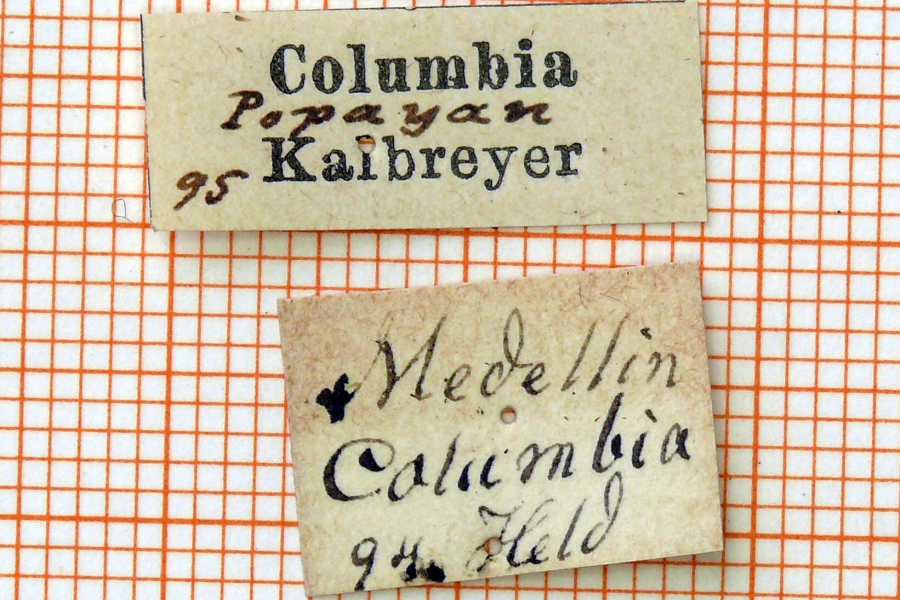 Columbia
Popayan
Kalbreyer
95
Medellin
Columbia
94. Held